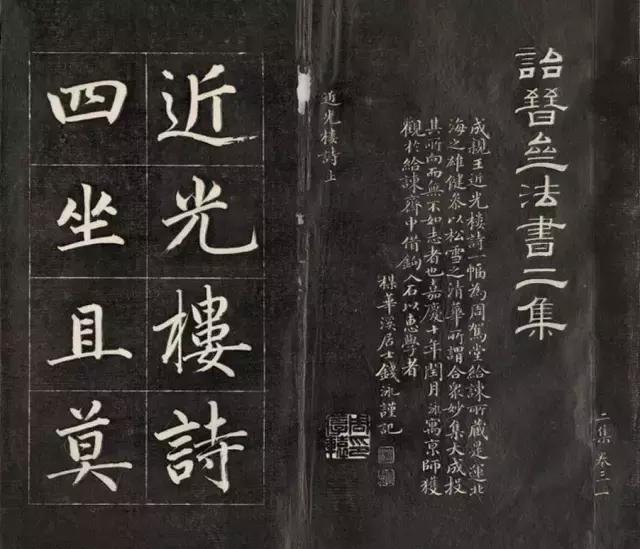 二集 卷三 一
詒晉齋法書二集
成親王近光樓詩一幅為周駕堂給諫所藏是運北
海之雄健參以松雪之清華所謂合眾妙集大成投
其所向而無不如志者也嘉慶十年閏月泳寓京師獲
觀於給諫齋中借鉤入石以惠學者
楳華溪居士錢泳謹記
近光樓詩上
近光樓詩
四坐且莫